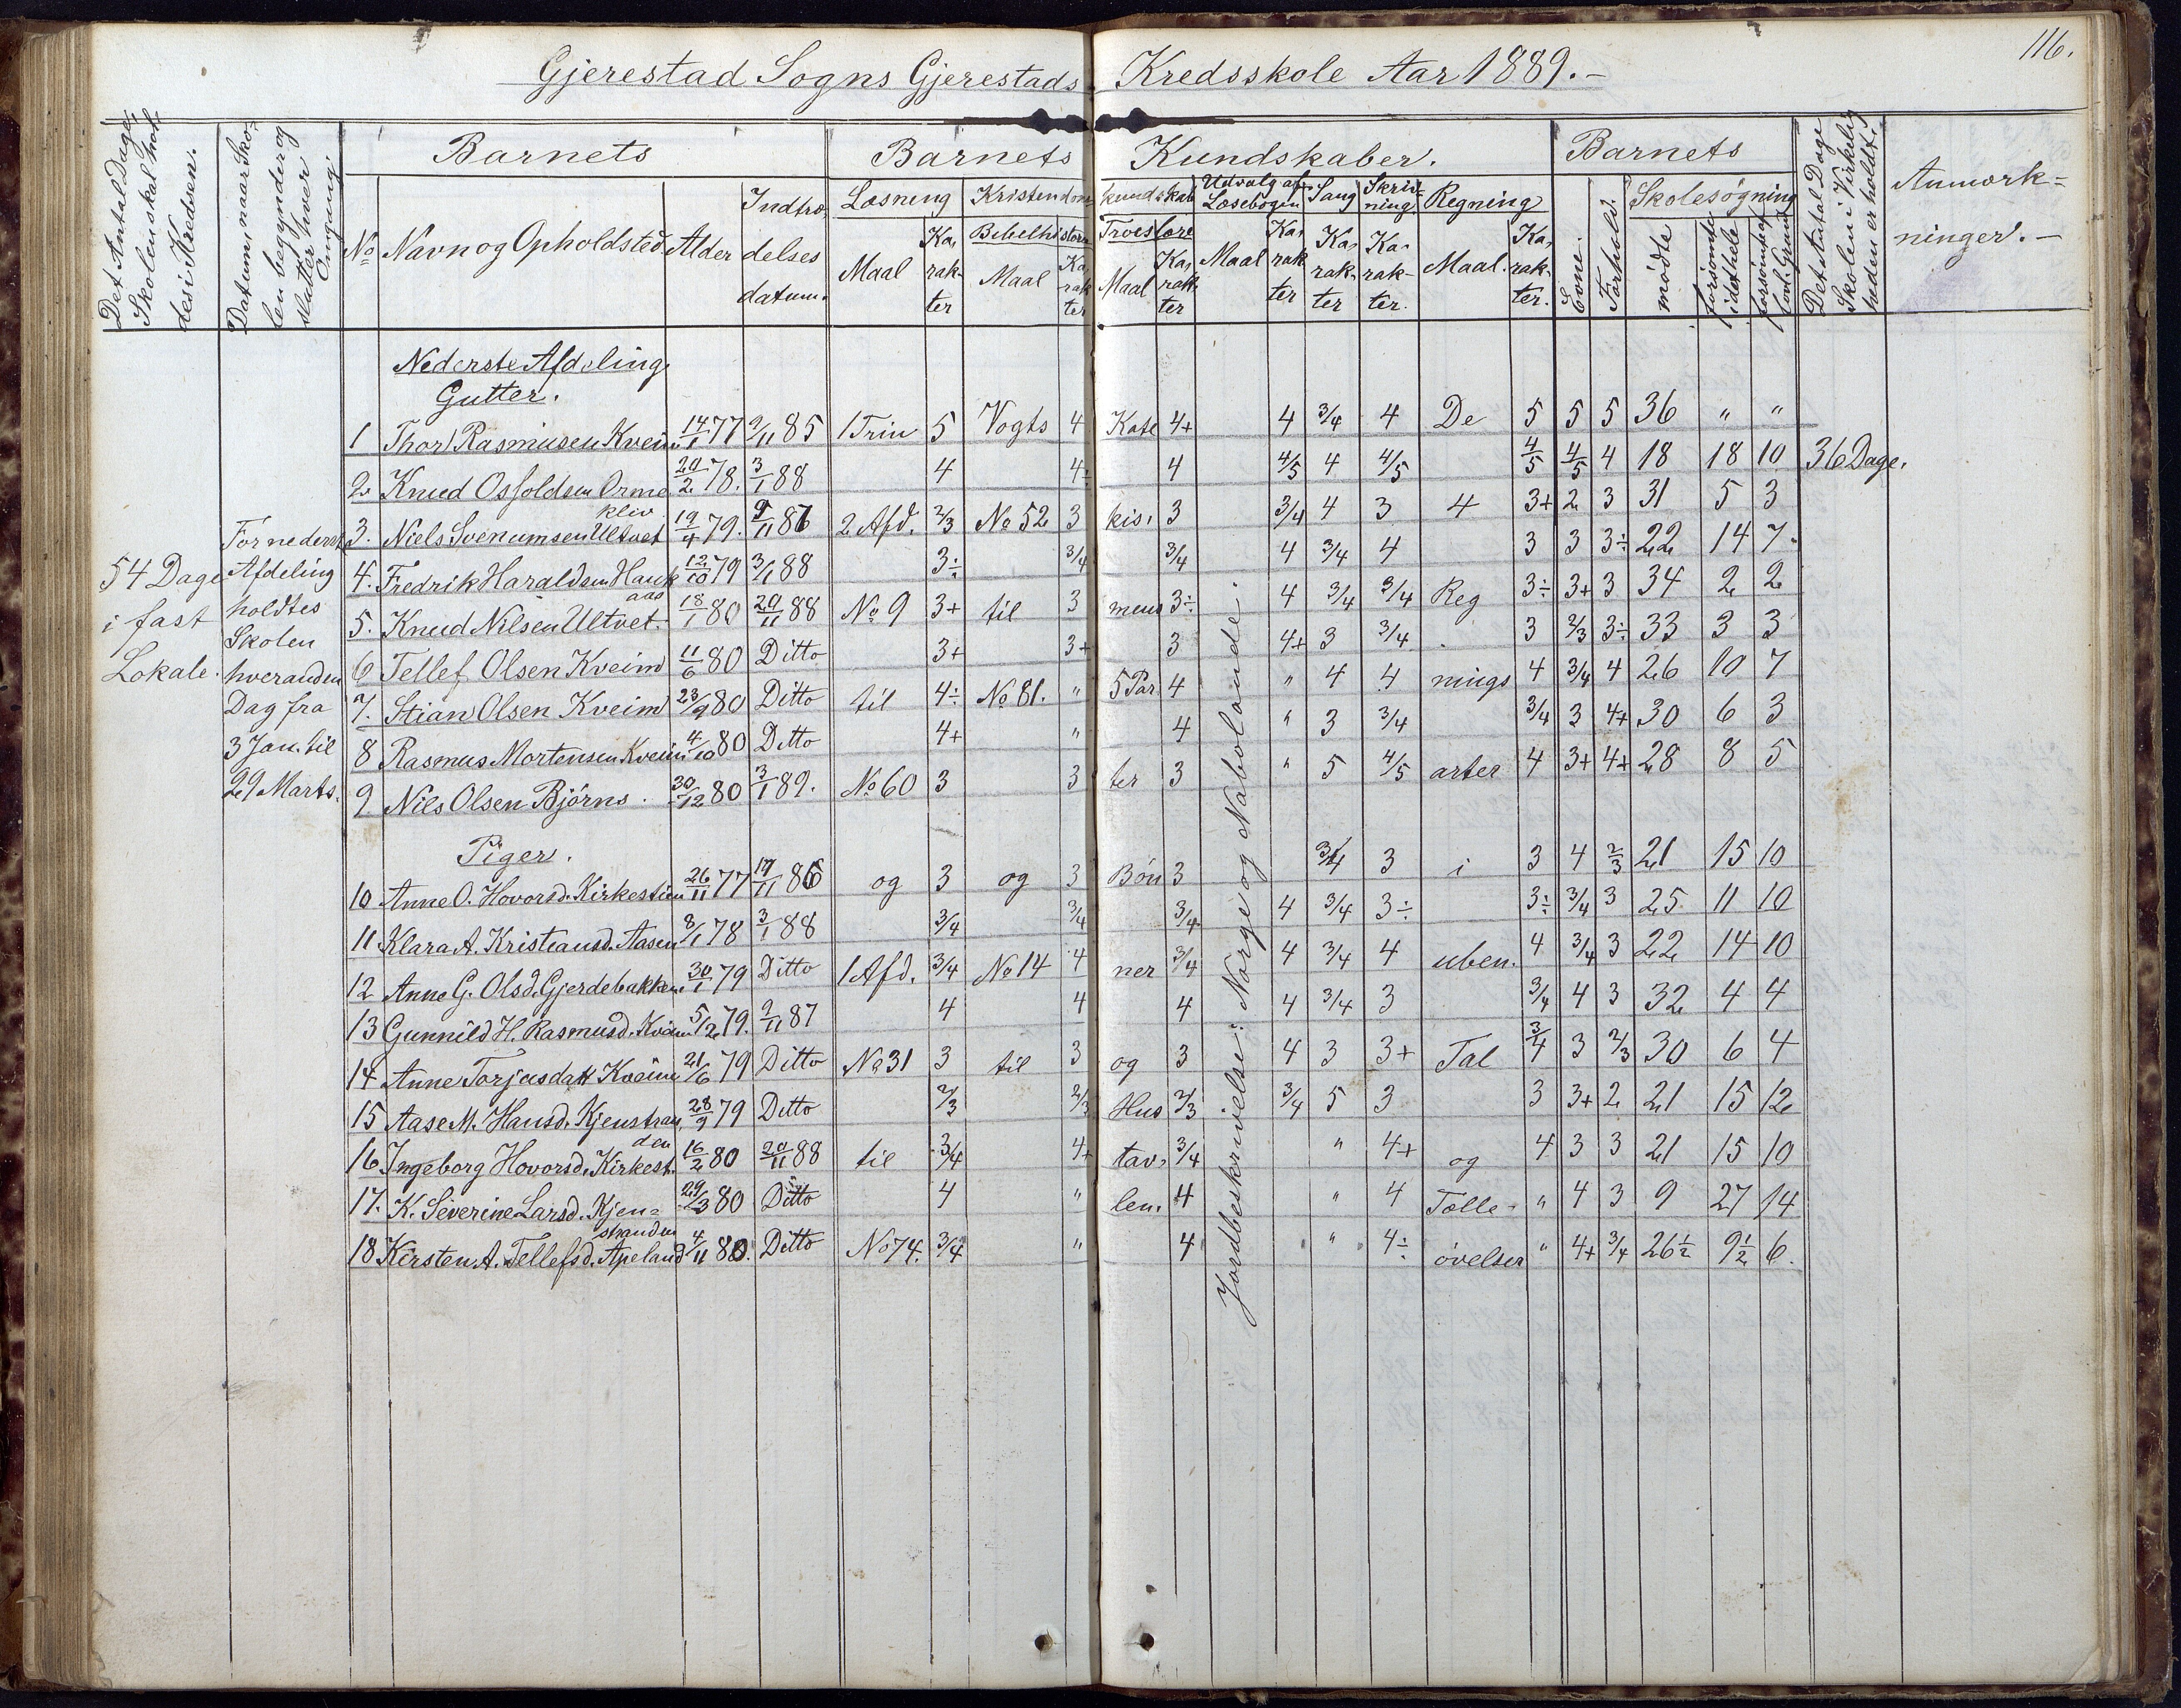 116.
Gjerestad Sogns Gjerestads Kredsskole Aar 1889.-
Det Antal Dage, Skolen skal holdes i Kredsen.
Datum, naar Skolen begynder og slutter hver Omgang
Barnets
Barnets Kundskaber.
Barnets
Det Antal Dage Skolen i Virkeligheden er holdt.
Anmærk=
ninger.-
No Navn og Opholdsted. Alder Indtrædelses datum.
Læsning Kristendomskundskab Udvalg af Læsebogen Sang Skrivning Regning Evne. Forhold. Skolesøgning
Bibelhistorie Troeslære
Maal Karakter Maal Karakter Maal Karakter Maal Karakter Karakter Karakter. Maal. Karakter. mødte forsömte i det hele forsömt af lovl. Grund
Nederste Afdeling
Gutter.
1 Thor Rasmusen Kveim 14/1 77 9/11 85 1 Trin 5 Vogts 4 Kate 4+ 4 3/4 4 De 5 5 5 36 " "
2 Knud Osfoldsen Ormekliv 20/2 78. 3/1 88 4 4÷ 4 4/5 4 4/5 4/5 4/5 4 18 18 10 36 Dage.
3. Niels Svenumsen Ultvet 19/4 79. 9/11 86 2 Afd. 2/3 No 52 3 kis, 3 3/4 4 3 4 3+ 2 3 31 5 3
4. Fredrik Haraldsen Haukaas 12/10 79 3/1 88 3÷ 3/4 3/4 4 3/4 4 3 3 3÷ 22 14 7
5. Knud Nilsen Ultvet. 18/1 80 20/11 88 No 9 3+ til 3 mus 3÷ 4 3/4 3/4 Reg 3÷ 3+ 3 34 2 2
6 Tellef Olsen Kveim 11/6 80 Ditto 3+ 3+ 3 4+ 3 3/4 3 2/3 3÷ 33 3 3
7. Stian Olsen Kveim 23/9 80 Ditto til 4÷ No 81. " 5 Par. 4 " 4 4 nings 4 3/4 4 26 10 7
8 Rasmus Mortensen Kveim 4/10 80 Ditto 4+ " 4 " 3 3/4 3/4 3 4+ 30 6 3
9. Nils Olsen Björns. 30/12 80 3/1 89. No 60 3 3 ter 3 " 5 4/5 arter 4 3+ 4+ 28 8 5
54 Dage
i fast
Lokale.
For nederst
Afdeling
holdtes
Skolen
hveranden
Dag fra
3 Jan. til
29 Marts.
Jordbeskrivelse: Norge og Nabolande.
Piger.
10 Anne O. Hovorsd. Kirkestien 26/11 77 17/11 86 og 3 og 3 Bön 3 3/4 3 i 3 4 2/3 21 15 10
11 Klara A. Kristiansd. Aasen 8/1 78 3/1 88 3/4 3/4 3/4 4 3/4 3÷ 3÷ 3/4 3 25 11 10
12 Anne G. Olsd. Gjerdebakken 30/1 79 Ditto 1 Afd. 3/4 No 14 4 ner 3/4 4 3/4 4 uben. 4 3/4 3 22 14 10
13 Gunnild H. Rasmusd. Kveim 5/2 79. 9/11 87 4 4 4 4 3/4 3 3/4 4 3 32 4 4
14 Anne Torjusdatt Kveim 21/6 79 Ditto No 31 3 til 3 og 3 4 3 3+ Tal 3/4 3 2/3 30 6 4
15 Aase M. Hansd. Kjenstranden 28/9 79 Ditto 2/3 2/3 Hus 2/3 3/4 5 3 3 3+ 2 21 15 12
16 Ingeborg Hovorsd. Kirkest. 16/2 80 20/11 88 til 3/4 4+ tav, 3/4 " 4+ og 4 3 3 21 15 10
17. K. Severine Larsd. Kjenstranden 29/3 80 Ditto 4 " len. 4 " 4 Tælle- " 4 3 9 27 14
18 Kirsten A. Tellefsd. Apeland 4/11 80. Ditto No 74. 3/4 " 4 " 4÷ övelser " 4+ 3/4 26½ 9½ 6.